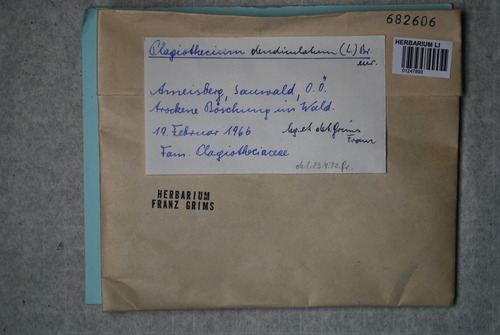 682606
HERBARIUM LI
Plagiothecium denticulatum (L) Br
eur.
Ameisberg, Sauwald, O.Ö.
trockene Böschung im Wald.
19. Februar 1966 leg. et det Grims
Franz
Fam. Plagiotheciaceae
det. 23.4.72 Gr.
HERBARIUM
FRANZ GRIMS